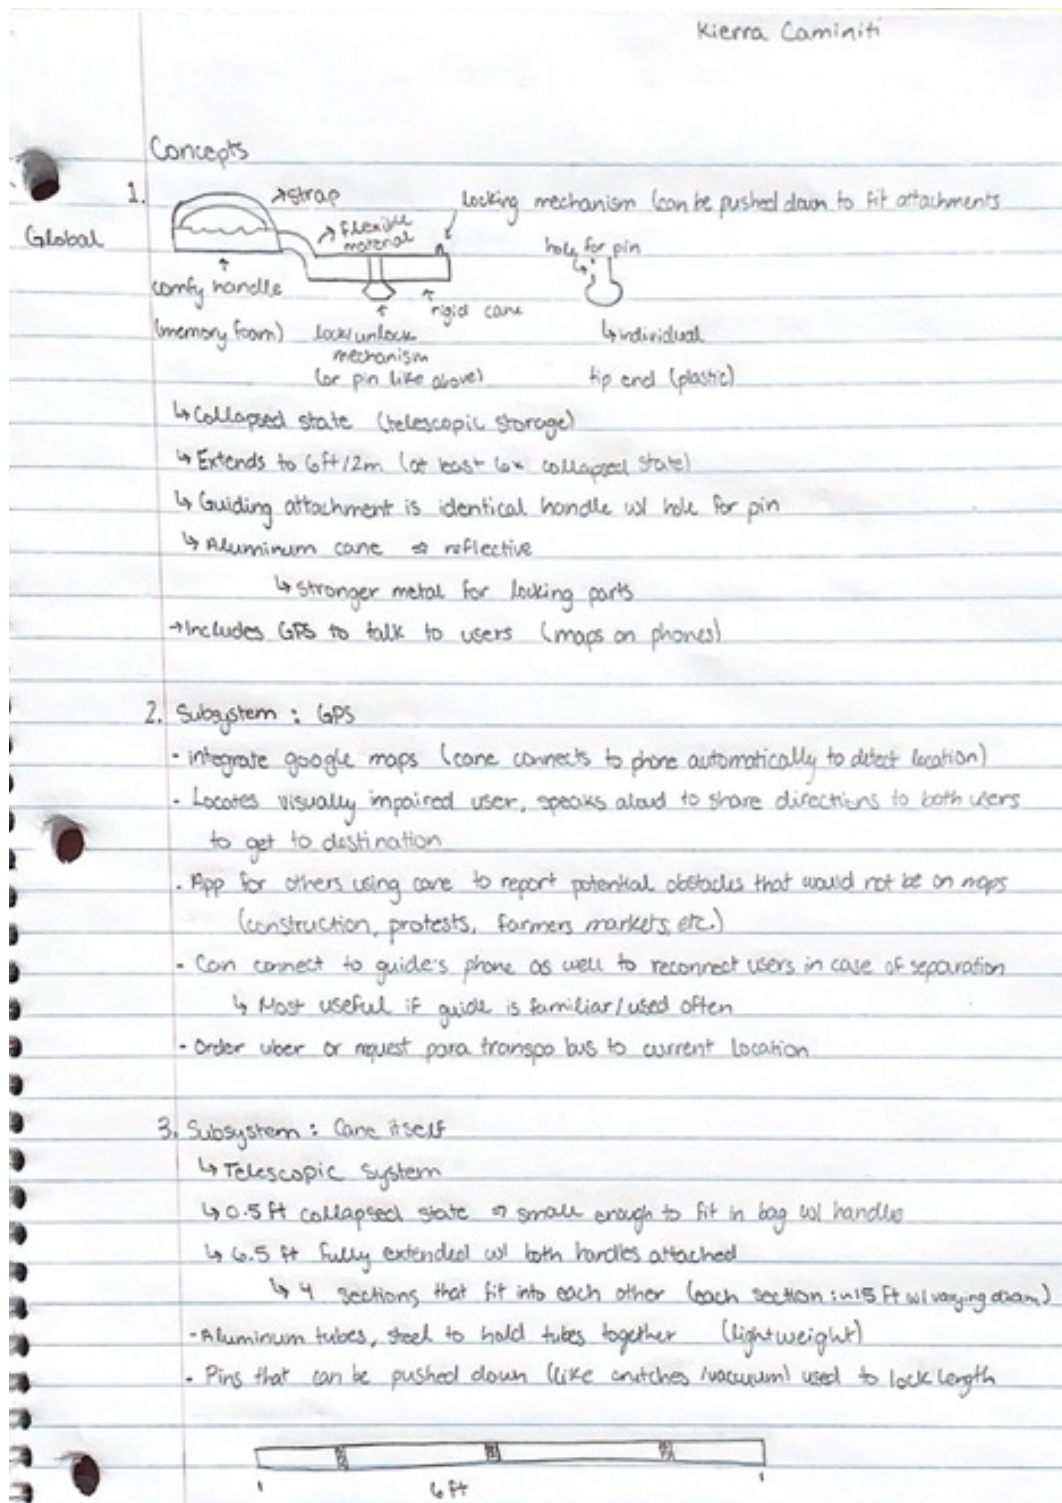 Kierra Caminiti
Concepts
1.
Global
→strap
→ flexible
material
locking mechanism (can be pushed down to fit attachments
hole for pin
comfy handle
(memory foam)
lock/unlock
mechanism
(or pin like above)
rigid cane
↳individual
tip end (plastic)
↳Collapsed state (telescopic storage)
↳Extends to 6ft/2m (at least 6x collapsed state)
↳Guiding attachment is identical handle w/ hole for pin
↳Aluminum cane ⇒ reflective
↳Stronger metal for locking parts
→Includes GPS to talk to users (maps on phones)
2. Subsystem : GPS
- integrate google maps (cane connects to phone automatically to detect location)
- Locates visually impaired user, speaks aloud to share directions to both users
to get to destination
- App for others using cane to report potential obstacles that would not be on maps
(construction, protests, farmers markets, etc.)
- Can connect to guide's phone as well to reconnect users in case of separation
↳ Most useful if guide is familiar/used often
- Order uber or request para transpo bus to current location
3. Subsystem : Cane itself
↳Telescopic System
↳0.5 ft collapsed state ⇒ small enough to fit in bag w/ handles
↳ 6.5 ft fully extended w/ both handles attached
↳ 4 sections that fit into each other (each section: 1.5 ft w/ varying diam)
-Aluminum tubes, steel to hold tubes together (lightweight)
- Pins that can be pushed down (like crutches/vacuum) used to lock length
6 ft